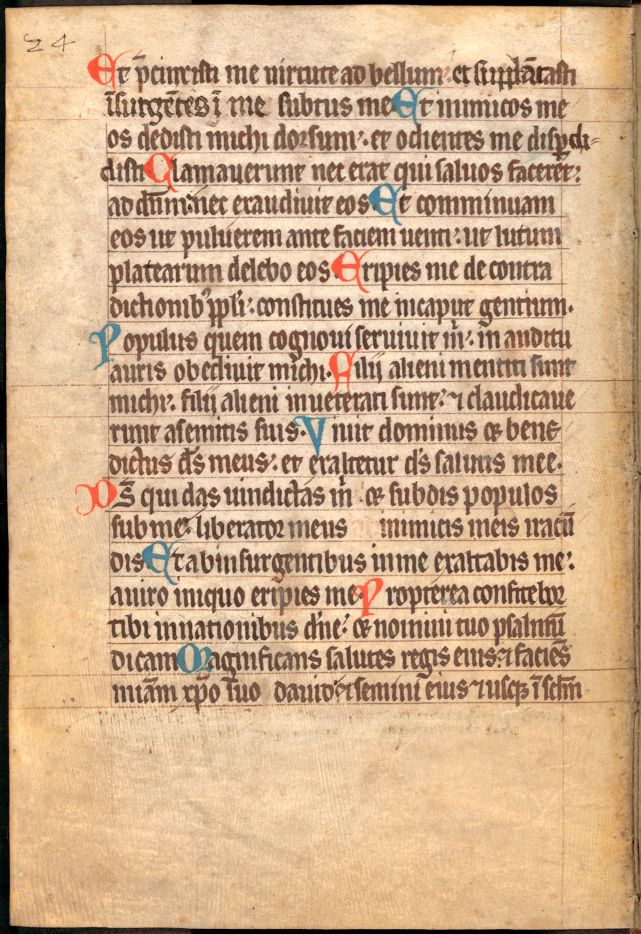 24
Et p̄cinxisti me uirtute ad bellum et supplātasti
īsurgētes ī me subtus me Et inimicos me
os dedisti michi dorsum: et odientes me disꝑdi-
disti Clamauerunt nec erat qui saluos faceret:
ad dūm: nec exaudiuit eos Et comminuam
eos ut puluerem ante faciem uenti: ut lutum
platearum delebo eos Eripies me de contra
dictionibꝰ ppli: constitues me incaput gentium.
Populus quem cognoui seruiuit m̄: in auditu
auris obediuit michi. Filij alieni mentiti sunt
michi: filij alieni inueterati sunt: ⁊ claudicaue
runt asemitis suis. Viuit dominus et bene
dictus d̄s meus: et exaltetur d̄s salutis mee.
Ds̄ qui das uindictas m̄ et subdis populos
sub me: liberator meus inimicis meis iracū
dis Et abinsurgentibus in me exaltabis me:
auiro iniquo eripies me. Propterea confitebor
tibi innationibus dn̄e: et nomini tuo psalmū
dicam Magnificans salutes regis eius: ⁊ faciēs
miām xp̄o suo dauid: ⁊ semini eius ⁊ usqꝫ ī sclm̄